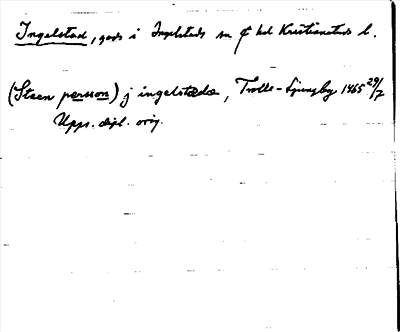 Ingelstad, gods i Ingelstads sn o hd Kristianstads l.
(Steen persson) j ingelstada, Trolle-Ljungby 1465 29/7
Upps. dipl. orig.